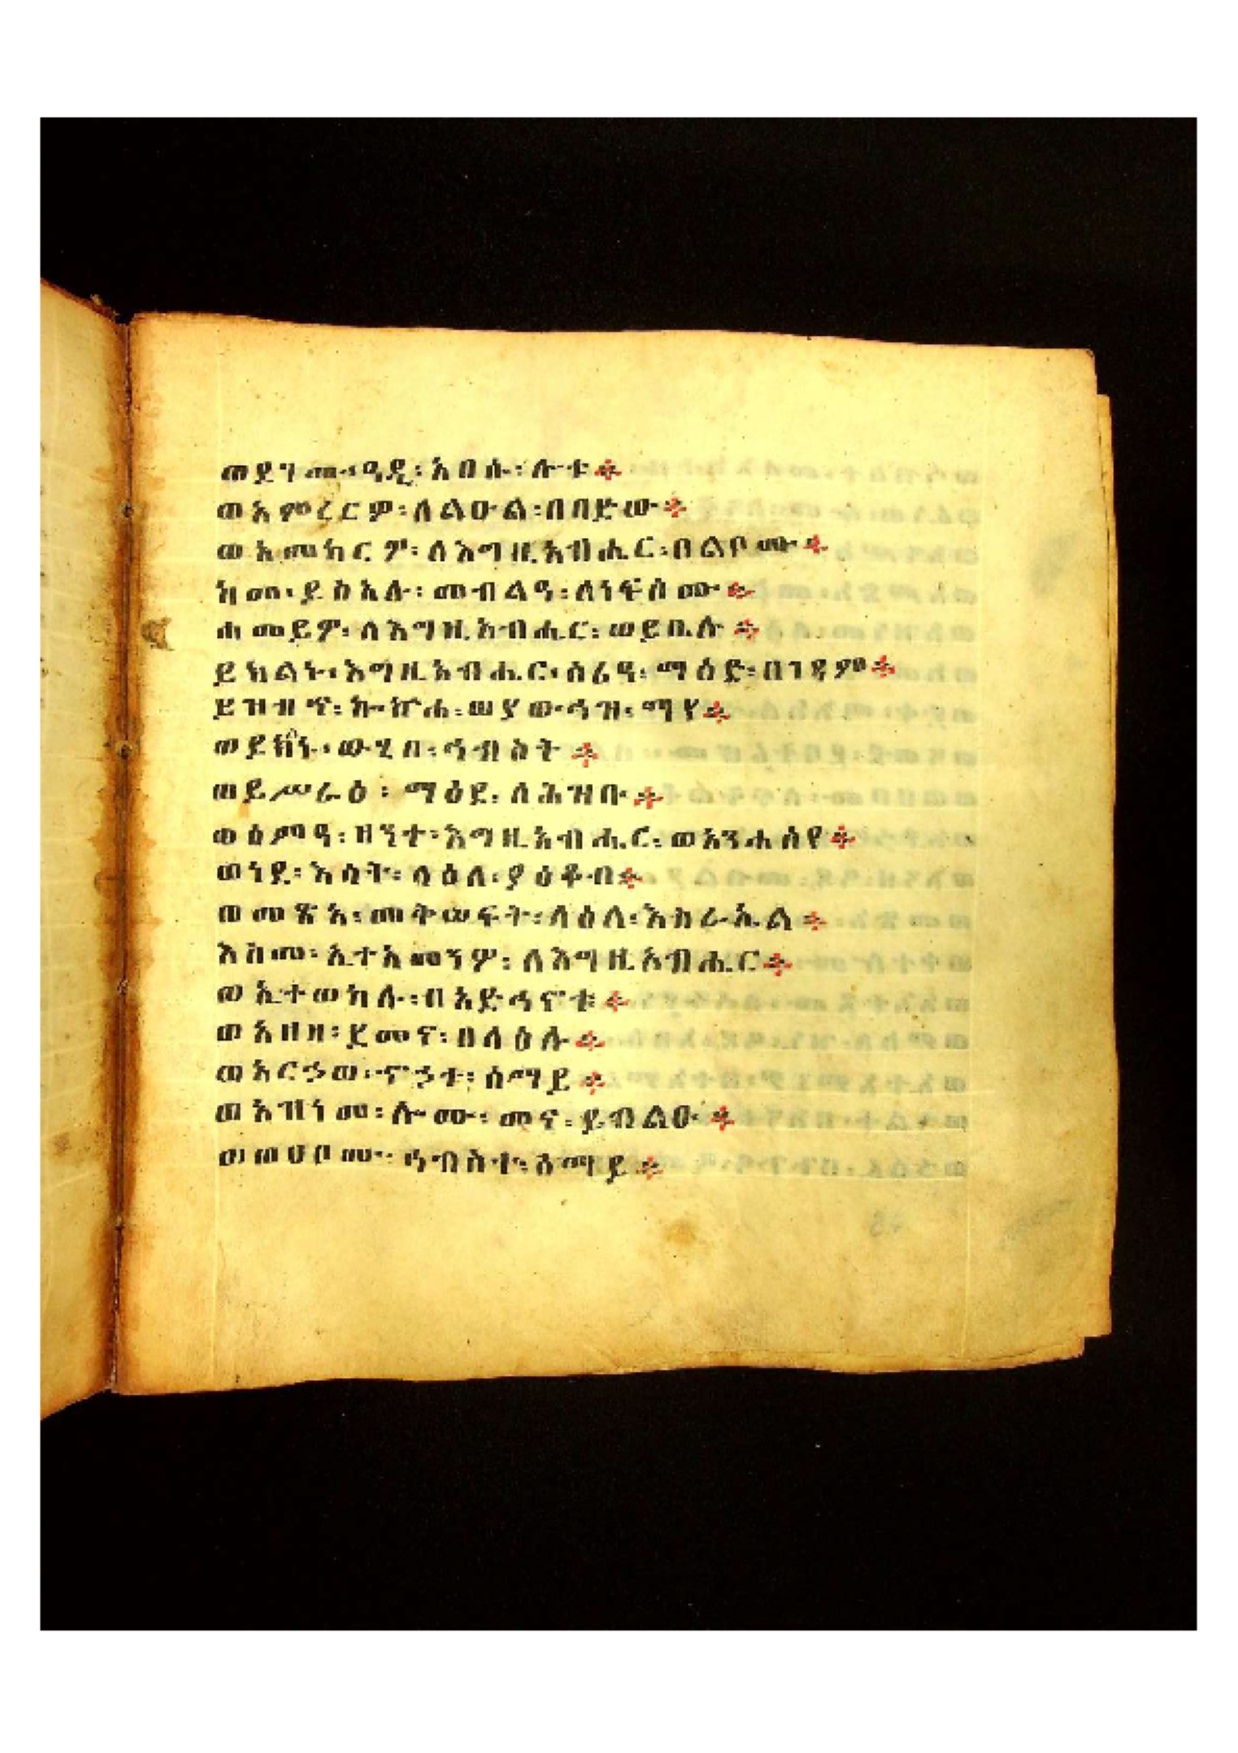 ወደገሙ፡ዓዲ፡አበሱ፡ሎቱ፨
ወአምረርዎ፡ለልዑል፡በበድው፨
ወአመከርዎ፡ለእግዚአብሔር፡በልቦሙ፨
ከመ፡ይስአሉ፡መብልዓ፡ለነፍሰሙ፨
ሐመይዎ፡ለእግዚአብሔር፡ወይቤሉ፨
ይክልኑ፡እግዚአብሔር፡ሰሪዓ፡ማዕድ፡በገዳም፨
ይዝብጥ፡ኰኵሐ፡ወያውኅዝ፡ማየ፨
ወይክነ፡ውሂበ፡ኅብስት፨
ወይሥራዕ፡ማዕደ፡ለሕዝቡ፨
ወሰምዓ፡ዘንተ፡እግዚአብሔር፡ወአንሐሰየ፨
ወነደ፡እሳት፡ላዕለ፡ያዕቆብ፨
ወመጽአ፡መቅሠፍት፡ላዕለ፡እስራኤል፨
እስመ፡ኢተአመንዎ፡ለእግዚአብሔር፨
ወኢተወከሉ፡በአድኅኖቱ፨
ወአዘዘ፡ደመና፡በላዕሉ፨
ወአርኃወ፡ኖኃተ፡ሰማይ፨
ወአዝነመ፡ሎሙ፡መና፡ይብልዑ፨
ወወሀቦሙ፡ኅብስተ፡ሰማይ፨